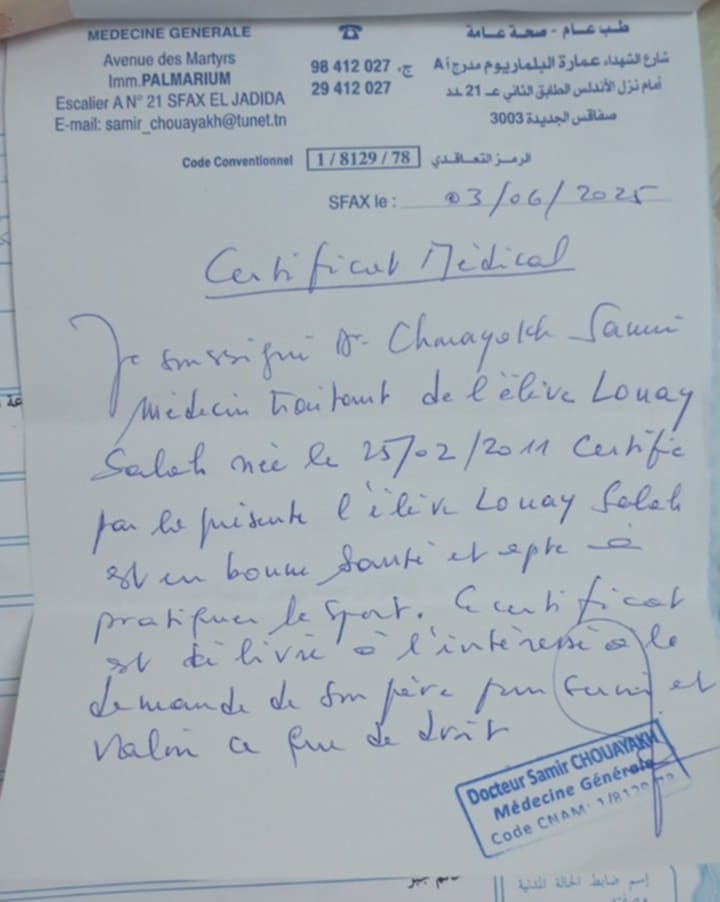 MEDECINE GENERALE
Avenue des Martyrs
Imm.PALMARIUM
Escalier A N° 21 SFAX EL JADIDA
E-mail: samir_chouayakh@tunet.tn
☎
98 412 027 ج.
29 412 027
طب عام - صحة عامة
شارع الشهداء عمارة البلماريوم مدرج A
أمام نزل الأندلس الطابق الثاني عـ 21 ـدد
صفاقس الجديدة 3003
Code Conventionnel 1 / 8129 / 78 الرمز التعاقدي
SFAX le : 03/06/2025
Certificat Médical
Je soussigné Dr Chouayakh Samir
Médecin traitant de l'élève Louay
Salah née le 25/02/2011 Certifie
par la présente l'élève Louay Salah
est en bonne santé et apte à
pratiquer le sport. Ce certificat
est délivré à l'intéressé à la
demande de son père pour servir et
valoir ce que de droit
Docteur Samir CHOUAYAKH
Médecine Générale
Code CNAM: 1/8129/78
إسم ضابط الحالة المدنية